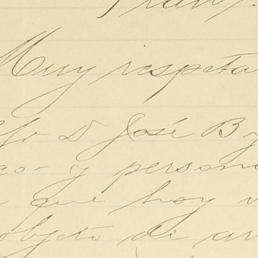 Muy respeta
D José B y
go y person
que hoy v
objeto di ar